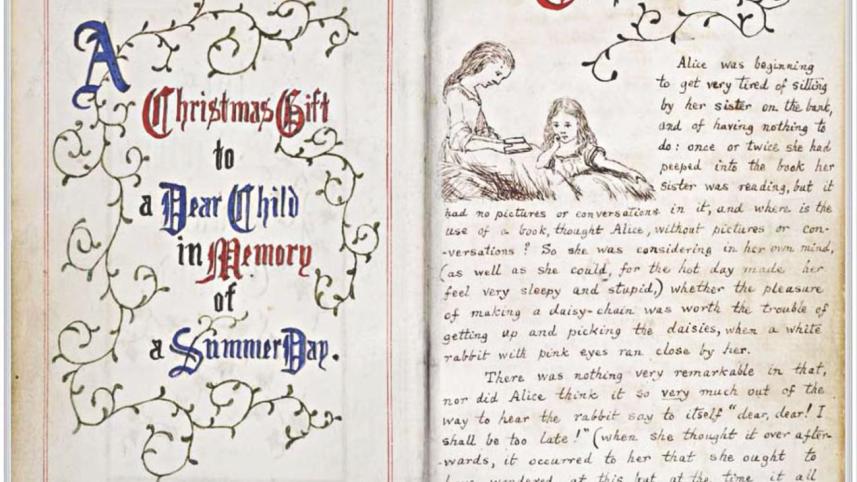 A
Christmas Gift
to
a Dear Child
in Memory
of
a Summer Day.
Alice was beginning
to get very tired of sitting
by her sister on the bank,
and of having nothing to
do: once or twice she had
peeped into the book her
sister was reading, but it
had no pictures or conversations in it, and where is the
use of a book, thought Alice, without pictures or con-
-versations? So she was considering in her own mind,
(as well as she could, for the hot day made her
feel very sleepy and stupid,) whether the pleasure
of making a daisy-chain was worth the trouble of
getting up and picking the daisies, when a white
rabbit with pink eyes ran close by her.
There was nothing very remarkable in that,
nor did Alice think it so very much out of the
way to hear the rabbit say to itself "dear, dear! I
shall be too late!" (when she thought it over after-
-wards, it occurred to her that she ought to
have wondered at this, but at the time it all